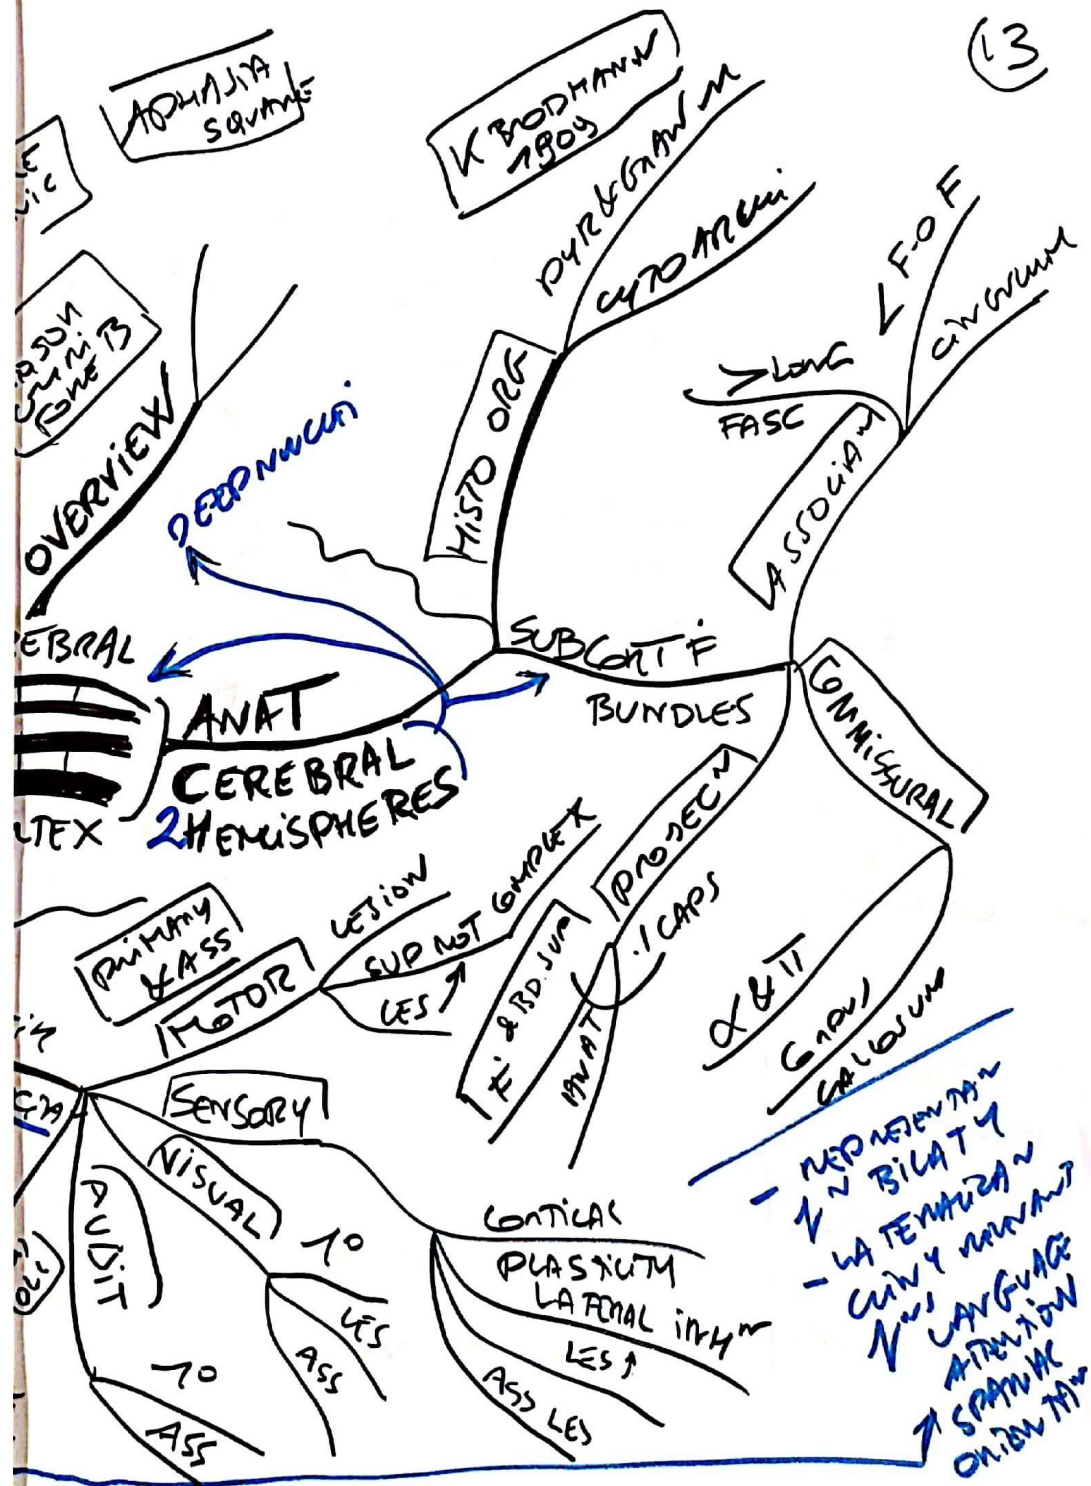 13
APHASIA
SQUARE
K BRODMANN
1909
PYR & GRAN N
CYTO ARCHI
HISTO ORG
< F-O F
CINGULUM
> LONG
FASC
ASSOCIAN
OVERVIEW
DEEP NUCLEI
EBRAL
LTEX
ANAT
CEREBRAL
2 HEMISPHERES
SUBCORT F
BUNDLES
COMMISSURAL
PROJECN
CAPS
F & BD. SUP
ANAT
& II
CORPUS
CALLOSUM
PRIMARY
& ASS
MOTOR
LESION
SUP MOT COMPLEX
LES
SENSORY
VISUAL
1°
LES
ASS
AUDIT
1°
ASS
CORTICAL
PLASTICITY
LATERAL INHN
LES ↑
ASS LES
- REPRESENTAN
IN BILATY
- LATERALIZAN
CLINY RELEVANT
LANGUAGE
ATTENTION
SPATIAL
ORIENTAN